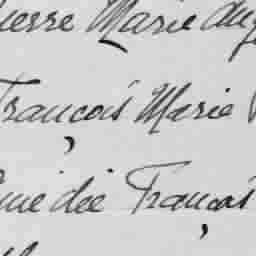 ierre Marie Aug
François Marie
médée François